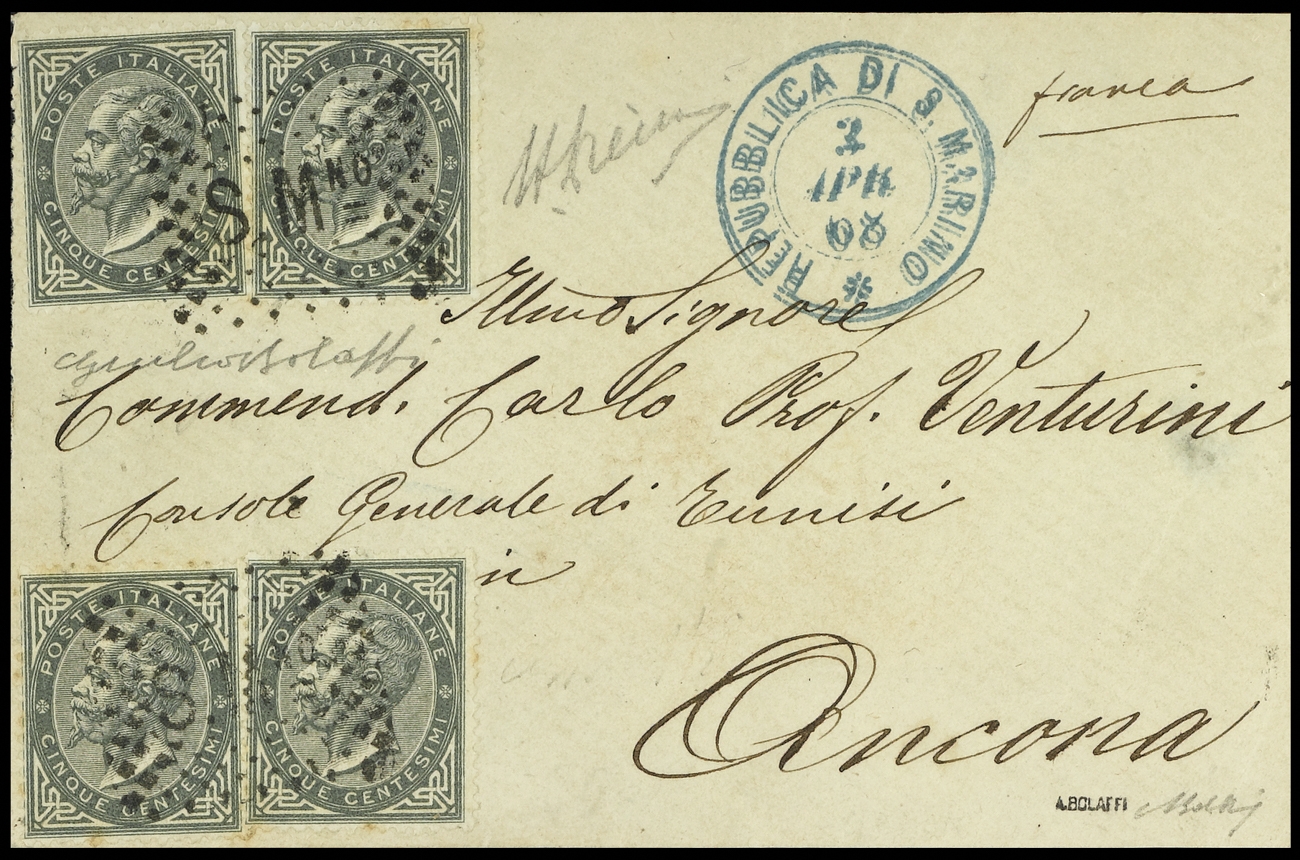 POSTE ITALIANE
CINQUE CENTESIMI
POSTE ITALIANE
CINQUE CENTESIMI
S. Mno
REPUBBLICA DI S. MARINO
APR
franca
Illmo Signore
Commend. Carlo Prof. Venturini
Console Generale di Tunisi
in
Ancona
POSTE ITALIANE
CINQUE CENTESIMI
POSTE ITALIANE
CINQUE CENTESIMI
A.BOLAFFI